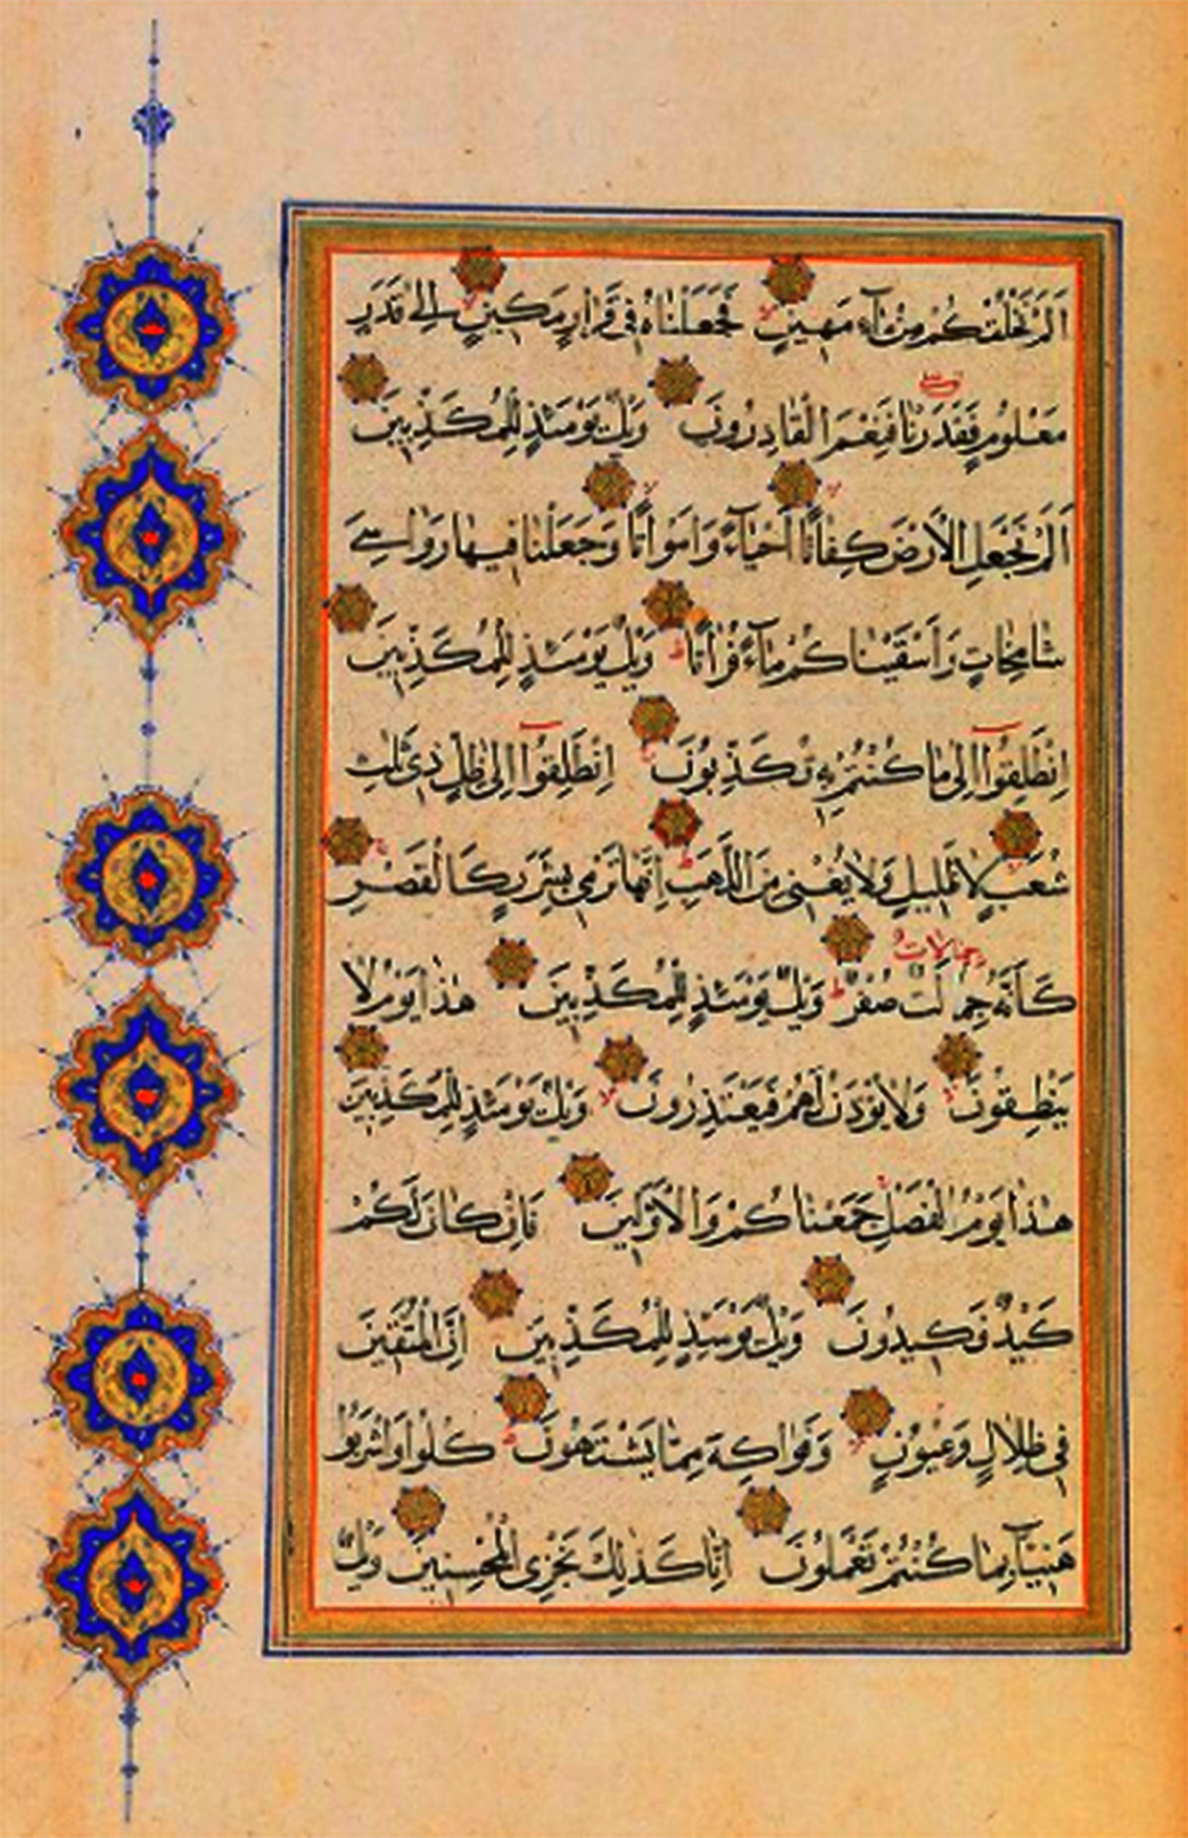 اَلَمْ نَخْلُقْكُمْ مِنْ مَاۤءٍ مَهِينٍ فَجَعَلْنَاهُ فِى قَرَارٍ مَكِينٍ اِلٰى قَدَرٍ
مَعْلُومٍ فَقَدَرْنَا فَنِعْمَ الْقَادِرُونَ وَيْلٌ يَوْمَئِذٍ لِلْمُكَذِّبِينَ
اَلَمْ نَجْعَلِ الْاَرْضَ كِفَاتًا اَحْيَاۤءً وَاَمْوَاتًا وَجَعَلْنَا فِيهَا رَوَاسِىَ
شَامِخَاتٍ وَاَسْقَيْنَاكُمْ مَاۤءً فُرَاتًا وَيْلٌ يَوْمَئِذٍ لِلْمُكَذِّبِينَ
اِنْطَلِقُوۤا اِلٰى مَا كُنْتُمْ بِهِ تُكَذِّبُونَ اِنْطَلِقُوۤا اِلٰى ظِلٍّ ذِى ثَلٰثِ
شُعَبٍ لَا ظَلِيلٍ وَلَا يُغْنِى مِنَ اللَّهَبِ اِنَّهَا تَرْمِى بِشَرَرٍ كَالْقَصْرِ
جمالات
كَاَنَّهُ جِمَالَتٌ صُفْرٌ وَيْلٌ يَوْمَئِذٍ لِلْمُكَذِّبِينَ هٰذَا يَوْمُ لَا
يَنْطِقُونَ وَلَا يُؤْذَنُ لَهُمْ فَيَعْتَذِرُونَ وَيْلٌ يَوْمَئِذٍ لِلْمُكَذِّبِينَ
هٰذَا يَوْمُ الْفَصْلِ جَمَعْنَاكُمْ وَالْاَوَّلِينَ فَاِنْ كَانَ لَكُمْ
كَيْدٌ فَكِيدُونِ وَيْلٌ يَوْمَئِذٍ لِلْمُكَذِّبِينَ اِنَّ الْمُتَّقِينَ
فِى ظِلَالٍ وَعُيُونٍ وَفَوَاكِهَ مِمَّا يَشْتَهُونَ كُلُوا وَاشْرَبُوا
هَنِيۤئًا بِمَا كُنْتُمْ تَعْمَلُونَ اِنَّا كَذٰلِكَ نَجْزِى الْمُحْسِنِينَ وَيْلٌ